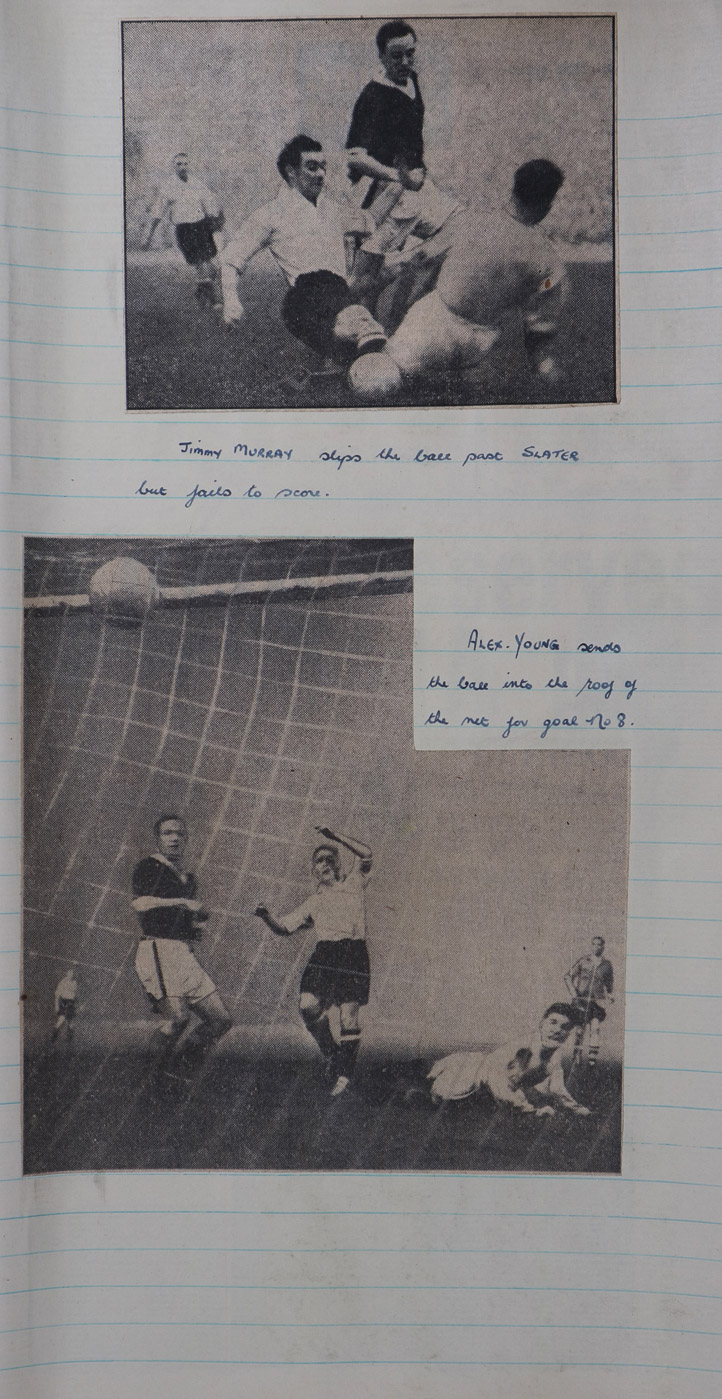 Jimmy MURRAY slips the ball past SLATER
but fails to score.
ALEX. YOUNG sends
the ball into the roof of
the net for goal No 8.